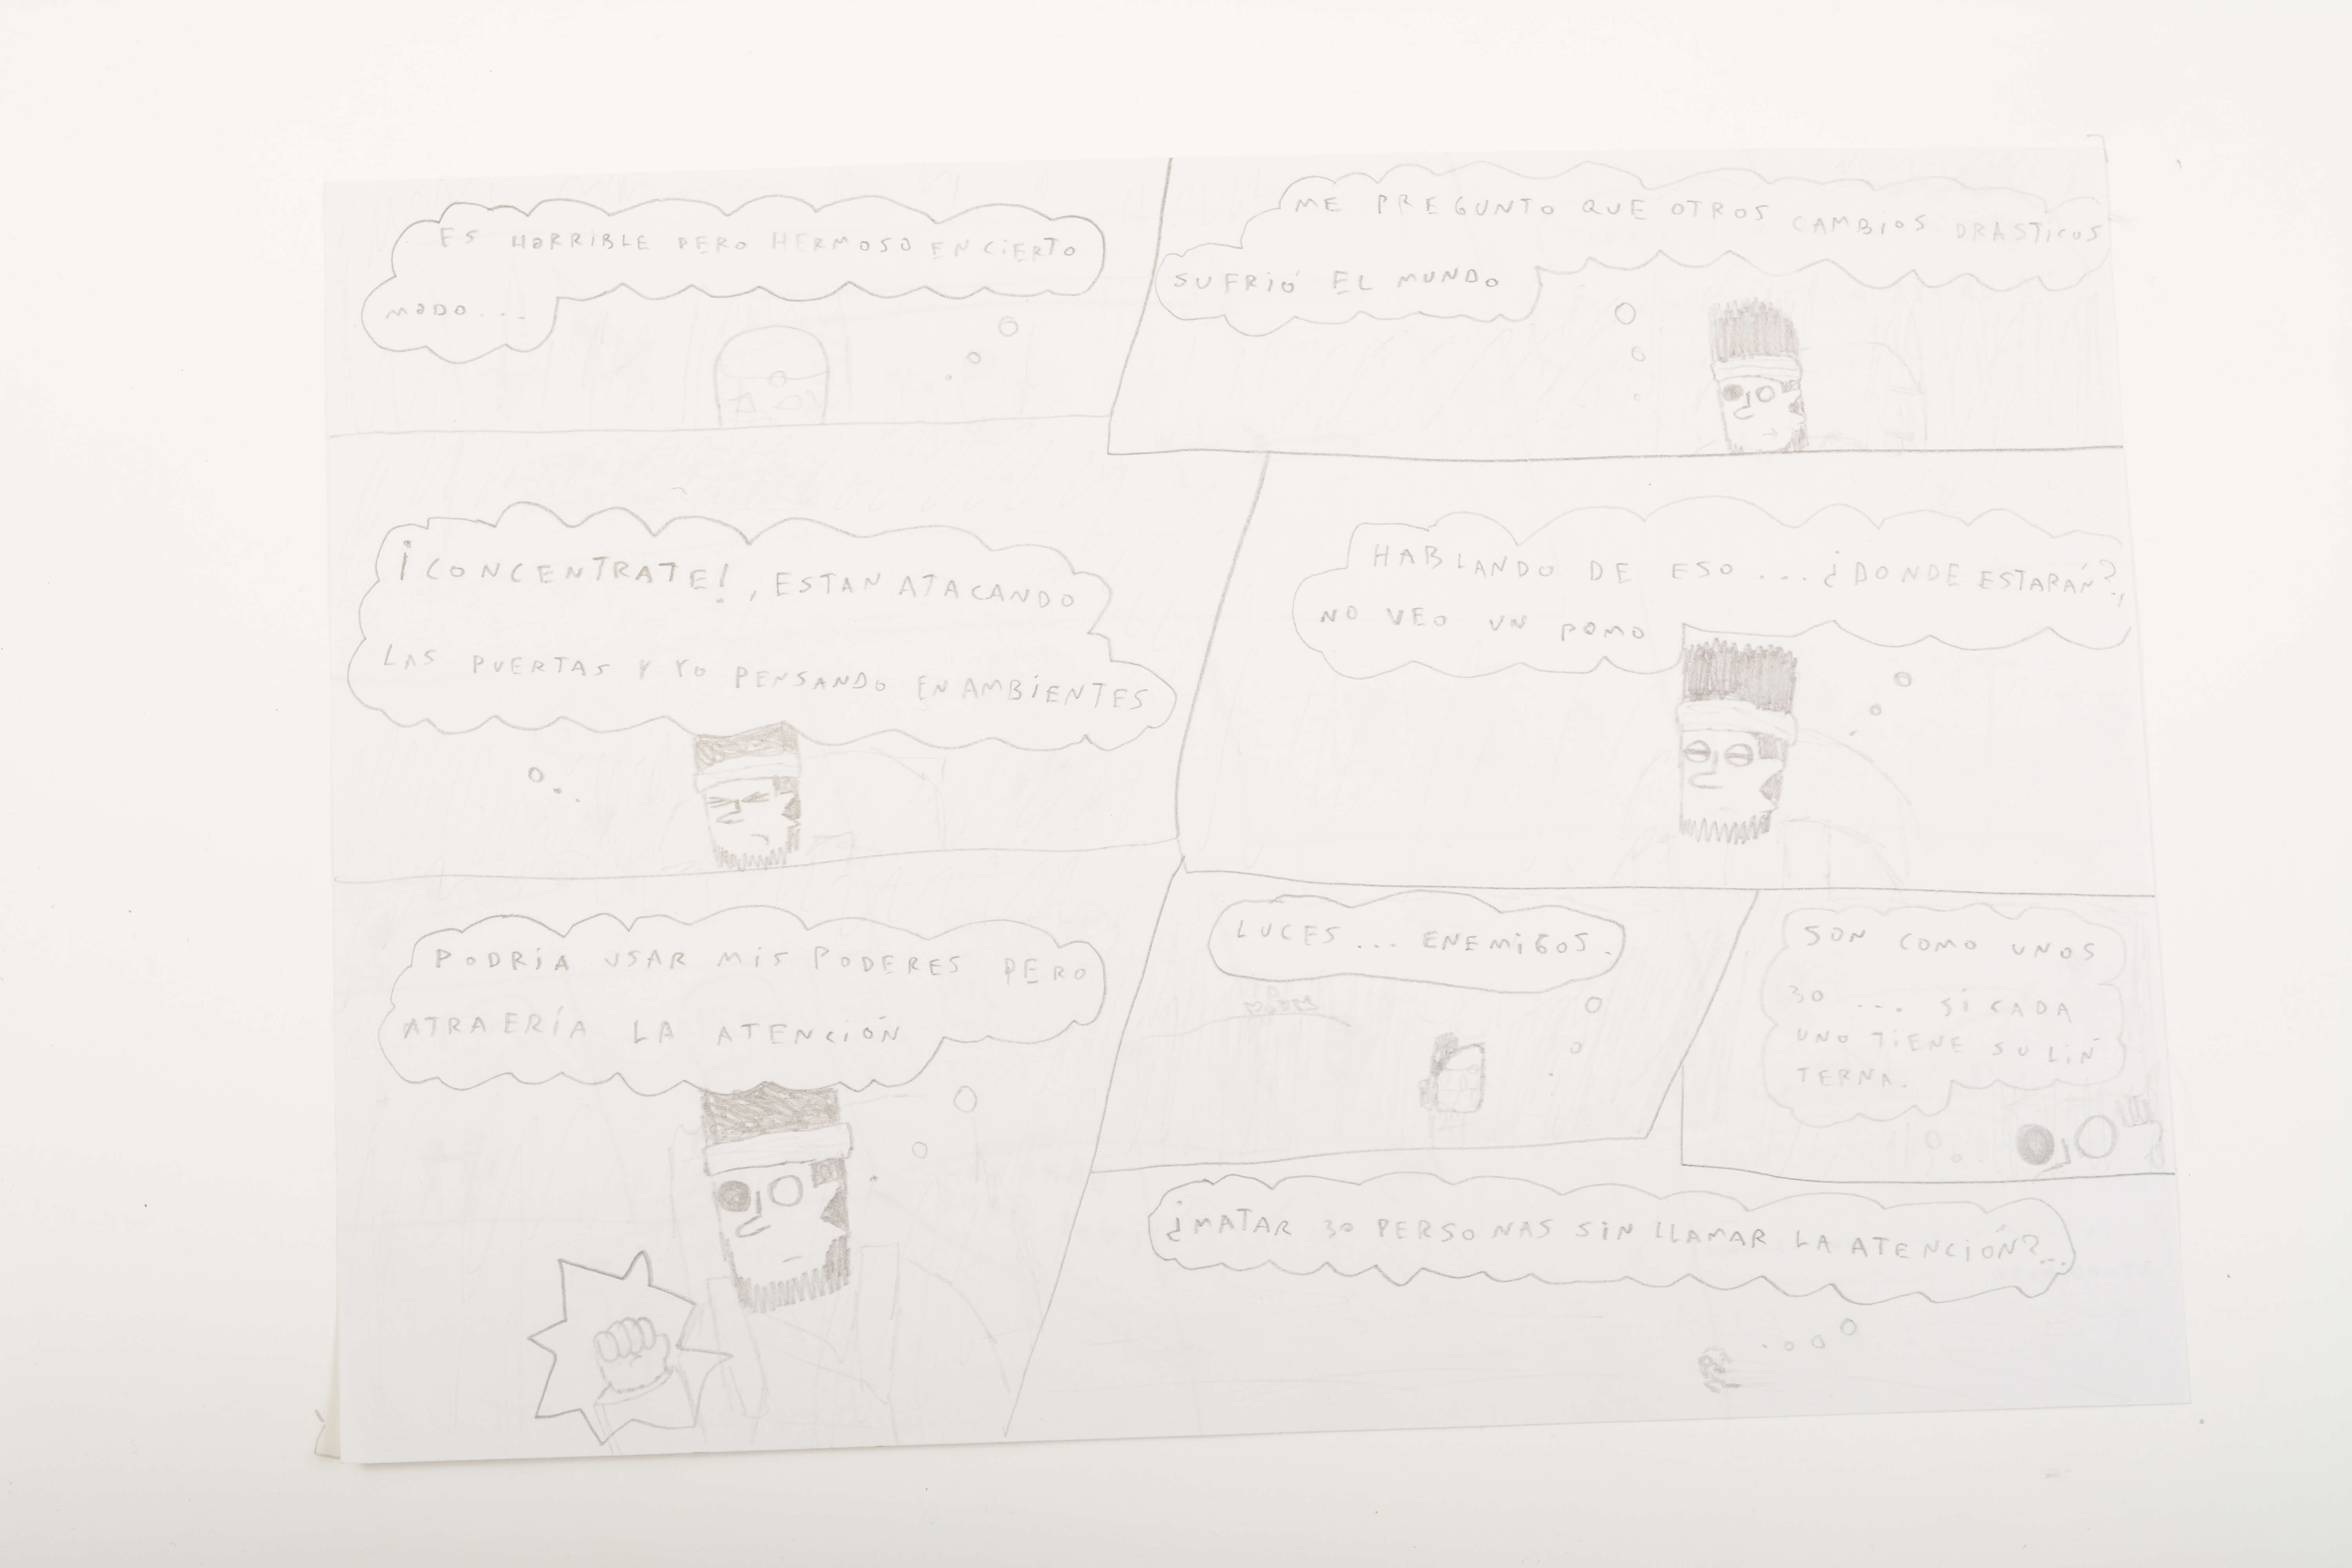 ES HORRIBLE PERO HERMOSO EN CIERTO
MODO...
ME PREGUNTO QUE OTROS CAMBIOS DRASTICOS
SUFRIÓ EL MUNDO
¡CONCENTRATE!, ESTAN ATACANDO
LAS PUERTAS Y YO PENSANDO EN AMBIENTES
HABLANDO DE ESO... ¿DONDE ESTARÁN?,
NO VEO UN POMO
PODRÍA USAR MIS PODERES PERO
ATRAERÍA LA ATENCIÓN
LUCES... ENEMIGOS.
SON COMO UNOS
30 ... SI CADA
UNO TIENE SU LIN
TERNA.
¿MATAR 30 PERSONAS SIN LLAMAR LA ATENCIÓN?...